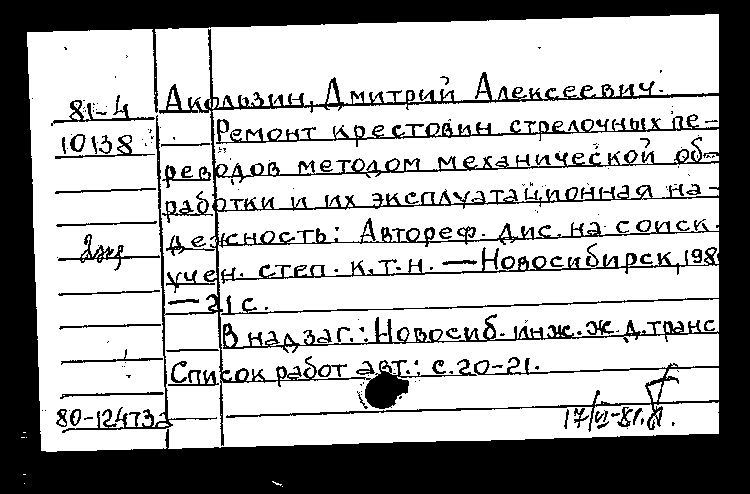 81-4
10138
2экз
Акользин, Дмитрий Алексеевич.
Ремонт крестовин стрелочных пе-
реводов методом механической об-
работки и их эксплуатационная на-
дежность: Автореф. дис. на соиск.
учен. степ. к.т.н. — Новосибирск, 198
— 21 с.
В надзаг.: Новосиб. инж. ж.д. транс
Список работ авт.: с. 20-21.
80-12473а